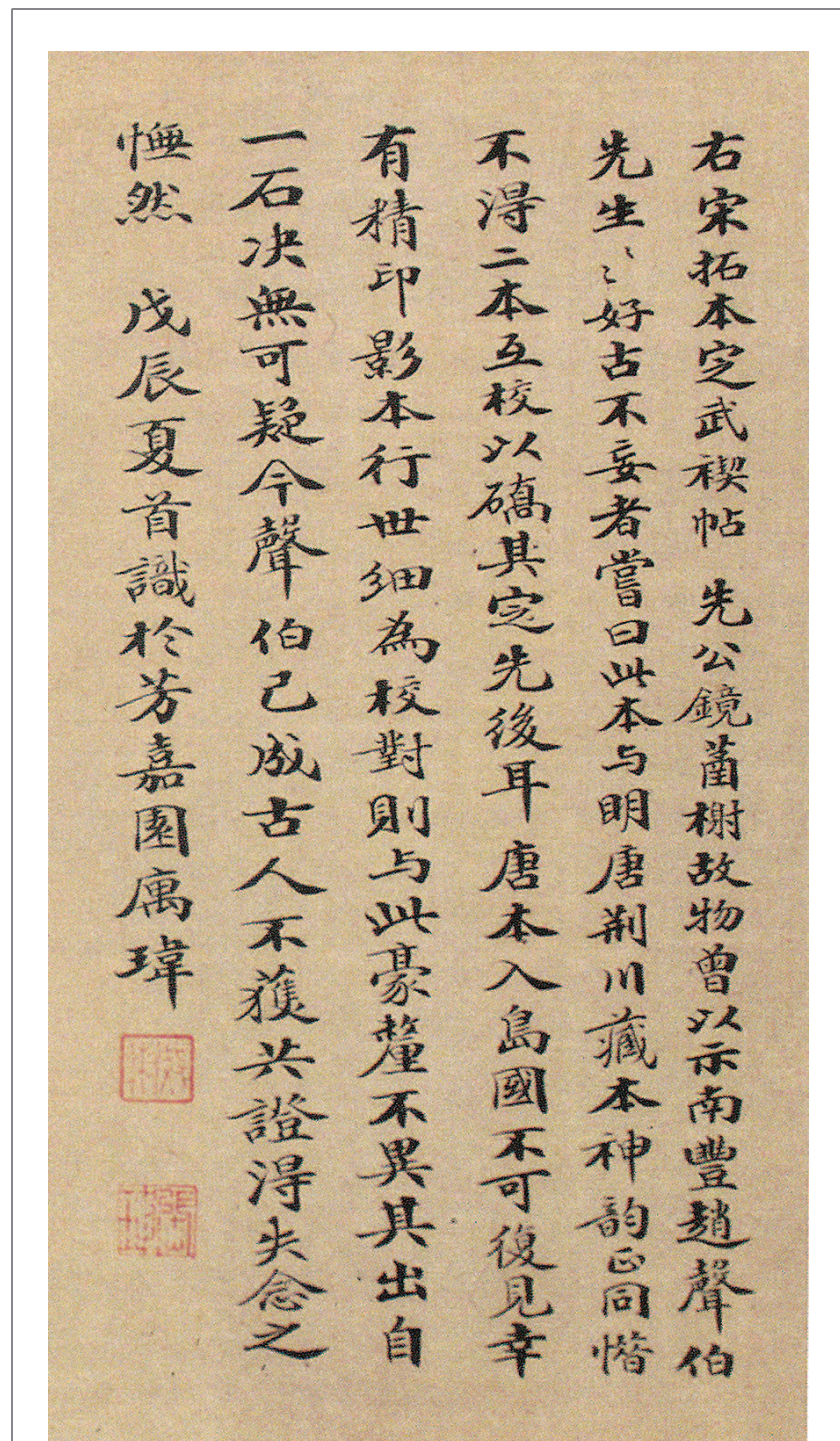 右宋拓本定武禊帖 先公鏡菡榭故物曾以示南豐趙聲伯
先生〻好古不妄者嘗曰此本与明唐荆川藏本神韵正同惜
不得二本互校以礄其定先後耳唐本入島國不可復見幸
有精印影本行世細為校對則与此豪釐不異其出自
一石决無可疑今聲伯已成古人不獲共證得失念之
憮然 戊辰夏首識於芳嘉園寓瑋